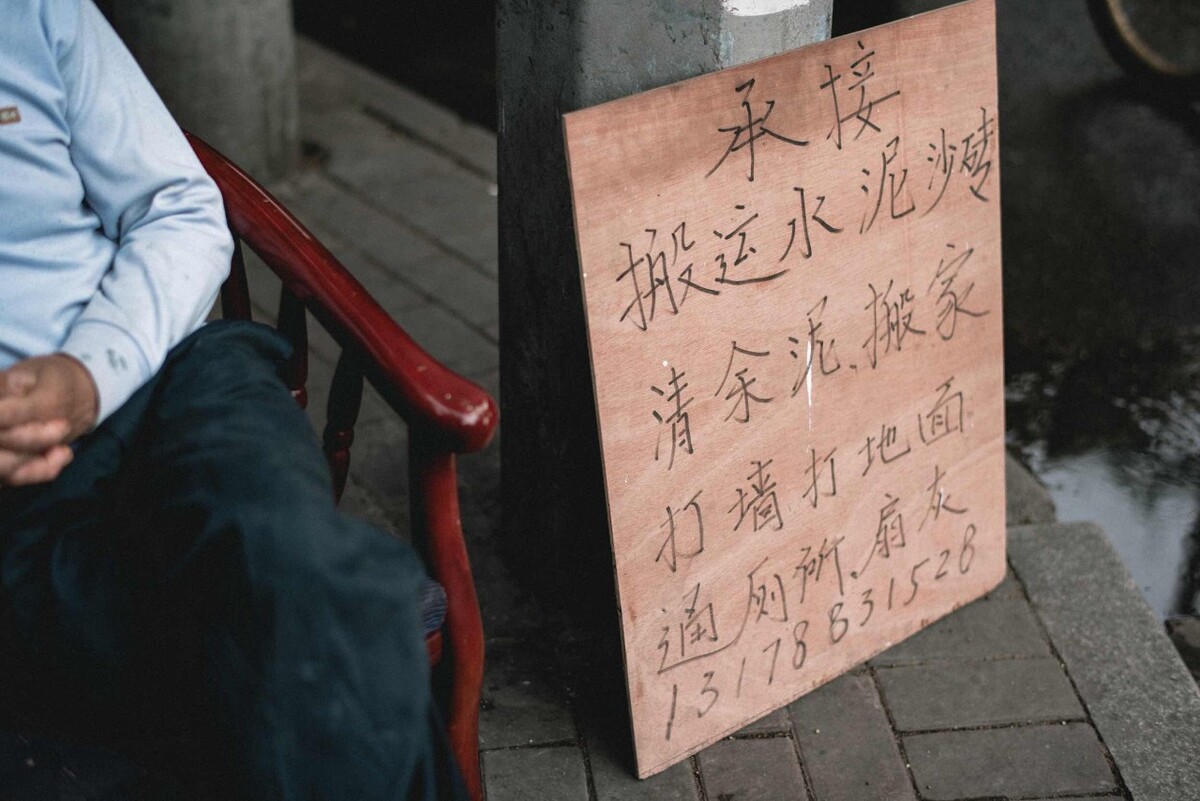 承接
搬运水泥沙砖
清余泥、搬家
打墙打地面
通厕所、扇灰
13178831528